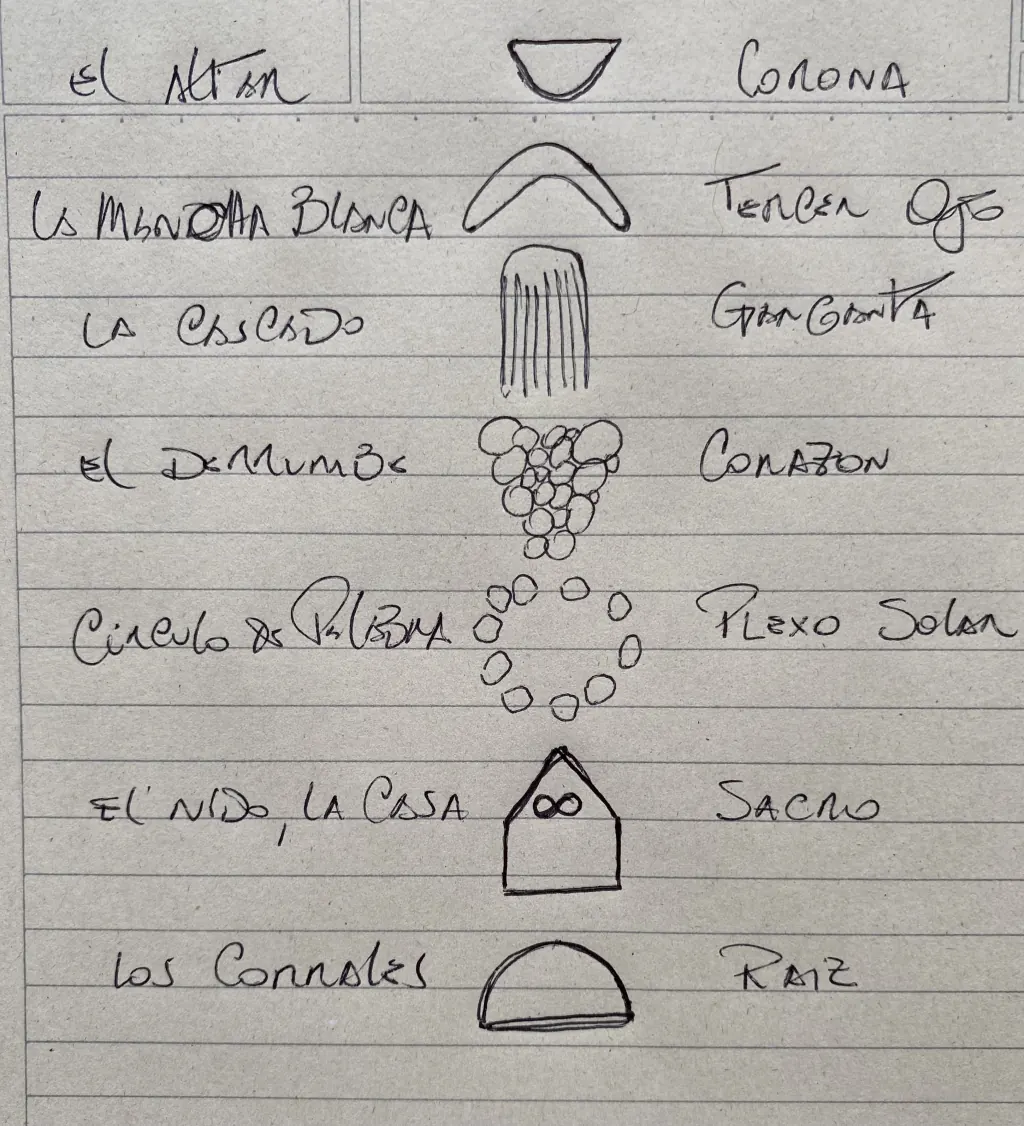 El Altar Corona
La Mandorla Blanca Tercer Ojo
La Cascado Garganta
El Derrumbe Corazon
Circulo de Palabra Plexo Solar
El Nido, La Casa Sacro
Los Corrales Raiz